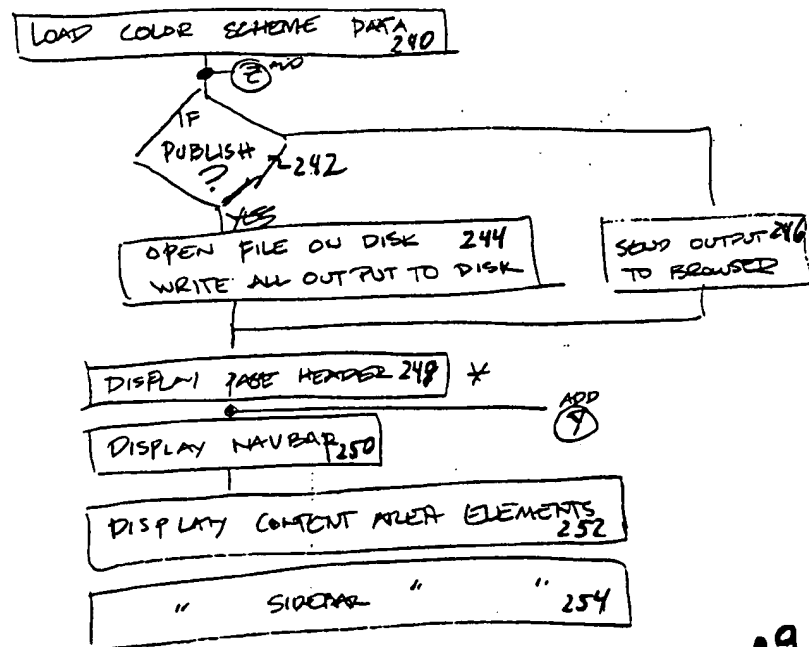 LOAD COLOR SCHEME DATA
240
Z ADD
IF
PUBLISH
?
242
YES
OPEN FILE ON DISK 244
WRITE ALL OUTPUT TO DISK
SEND OUTPUT 246
TO BROWSER
DISPLAY PAGE HEADER 248 *
ADD
Y
DISPLAY NAVBAR 250
DISPLAY CONTENT AREA ELEMENTS
252
" SIDEBAR " " 254